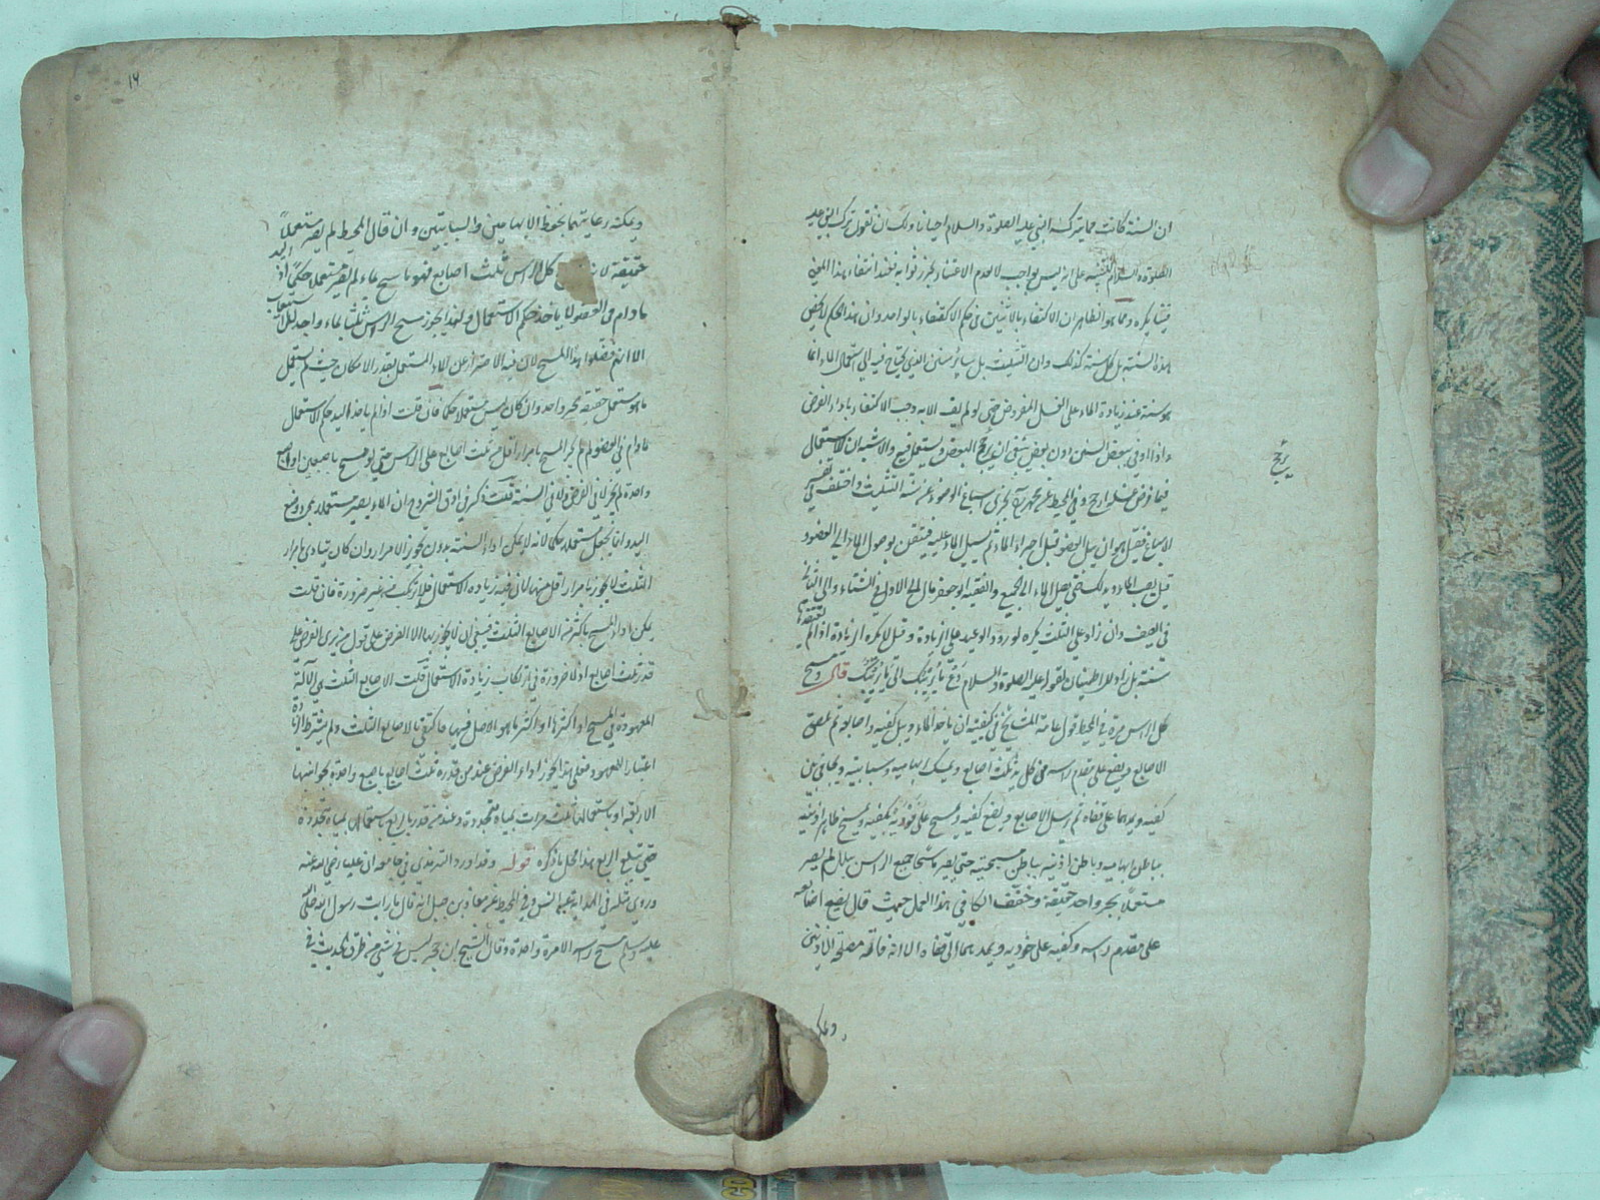 ان السنة كانت مما يتركه النبي عليه الصلوة والسلام احيانا ولك ان تقول ترك النبي عليه
الصلوة والسلام ليس بواجب لا لعدم الاعتبار بهذا المعنى
الاكتفاء بالاثنين في حكم الاكتفاء بالواحد وان هذا الحكم لا يخص
هذه السنة بل كل سنة كذلك وان التثليث بل سائر سنن الذي يحتاج فيه الى استعمال الماء انما
هو سنة عند زيادة الماء على الغسل المفروض حتى لو لم يف الا به وجب الاكتفاء باداء الفرض
واذا وفى ببعض السنن دون بعض ينبغي ان يرجح البعض ويستعمل فيه والاشبه ان الاستعمال
يرجح
فيما فرض عملا ارجح وفي المحيط عن محمد اسباغ الوضوء عن سنة التثليث واختلف في تفسير
الاسباغ فقيل هو ان يبل العضو قبل اجراء الماء ثم يسيل الماء عليه فيتيقن بوصول الماء الى العضو
قبل يصب الماء ويدلك حتى يصل الماء الى الجميع والفقيه ابو جعفر مال الى الاول في الشتاء والى الثاني
في الصيف وان زاد على الثلث يكره لورود الوعيد على الزيادة وقيل لا يكره الزيادة اذا لم يعتقدها
سنة بل زاد للاطمئنان لقوله عليه الصلوة والسلام دع ما يريبك الى ما لا يريبك قال ومسح
كل الراس مرة في المحيط قول عامة المشايخ في كيفيته ان ياخذ الماء ويبل كفيه واصابعه ثم يلصق
الاصابع ويضع على مقدم راسه من كل يد ثلث اصابع ويمسك ابهاميه وسبابتيه ويجافي بين
كفيه ويمدهما على قفاه ثم يرسل الاصابع ويضع كفيه ويمسح على فوديه بكفيه ويمسح ظاهر اذنيه
بباطن ابهاميه وباطن اذنيه بباطن مسبحتيه حتى يصير ماسحا جميع الراس ببلل لم يصر
مستعملا بجر واحد حقيقة وخفف الكافي هذا العمل حيث قال يضع اصابعه
على مقدم راسه وكفيه على فوديه ويمدهما الى قفاه الا انه فاته مصلحة الاذنين
ويمكنه
١٦
ويمكنه رعايتهما بحفظ الابهامين والسبابتين وان قال المحيط لم يصر مستعملا
حقيقة كل الراس بثلث اصابع فهو ماسح بماء لم يصر مستعملا حكما اذ
ما دام في العضو لا ياخذ حكم الاستعمال ولهذا يجوز مسح الراس ثلثا بماء واحد
الا انهم فضلوا هذا المسح لان فيه الاحتراز عن الماء المستعمل بقدر الامكان حيث لم يستعمل
ما هو مستعمل حقيقة بجر واحد وان كان ليس مستعملا حكما فان قلت اذا لم ياخذ اليد حكم الاستعمال
ما دام في العضو لم لم يجز المسح بامرار اقل من ثلث اصابع على الراس حتى لو مسح باصبعين او اصبع
واحدة لم يجز لا في الفرض ولا في السنة قلت ذكر في اوفى الشروح ان الماء يصير مستعملا بمجرد وضع
اليد وانما لم يجعل مستعملا حكما لانه لا يمكن اداء السنة بدون تجويز الامرار وان كان يتادى بامرار
الثلث لا يجوز بامرار اقل منها لان فيه زيادة الاستعمال فلا يرتكب من غير ضرورة فان قلت
يمكن اداء المسح باكثر من الاصابع الثلث فينبغي ان لا يجوز بها الا الفرض على قول من يرى الفرض على
قدر ثلث اصابع اذ لا ضرورة في ارتكاب زيادة الاستعمال قلت الاصابع الثلث هي الآلة
المعهودة في المسح او اكثرها واكثر ما هو الاصل فيها فاكتفي بالاصابع الثلث ولم يشترط الزيادة
اعتبارا للمعهود فعلى هذا يجوز اداء الفرض عند من قدره ثلث اصابع باصبع واحدة بجوانبها
الاربعة او باستعمالها ثلث مرات بمياه متجددة وعند من قدر بالربع باستعمال بمياه متجددة
حتى تبلغ الربع بهذا المحل ما ذكره قوله وقد اورد الترمذي في جامعه ان عليا رضي الله عنه
وروي مثله في الهداية عن انس وفي المحيط عن معاذ بن جبل انه قال ما رايت رسول الله صلى
عليه وسلم مسح راسه الا مرة واحدة وقال الشيخ ابن حجر ليس في شيء من طرق الحديث في